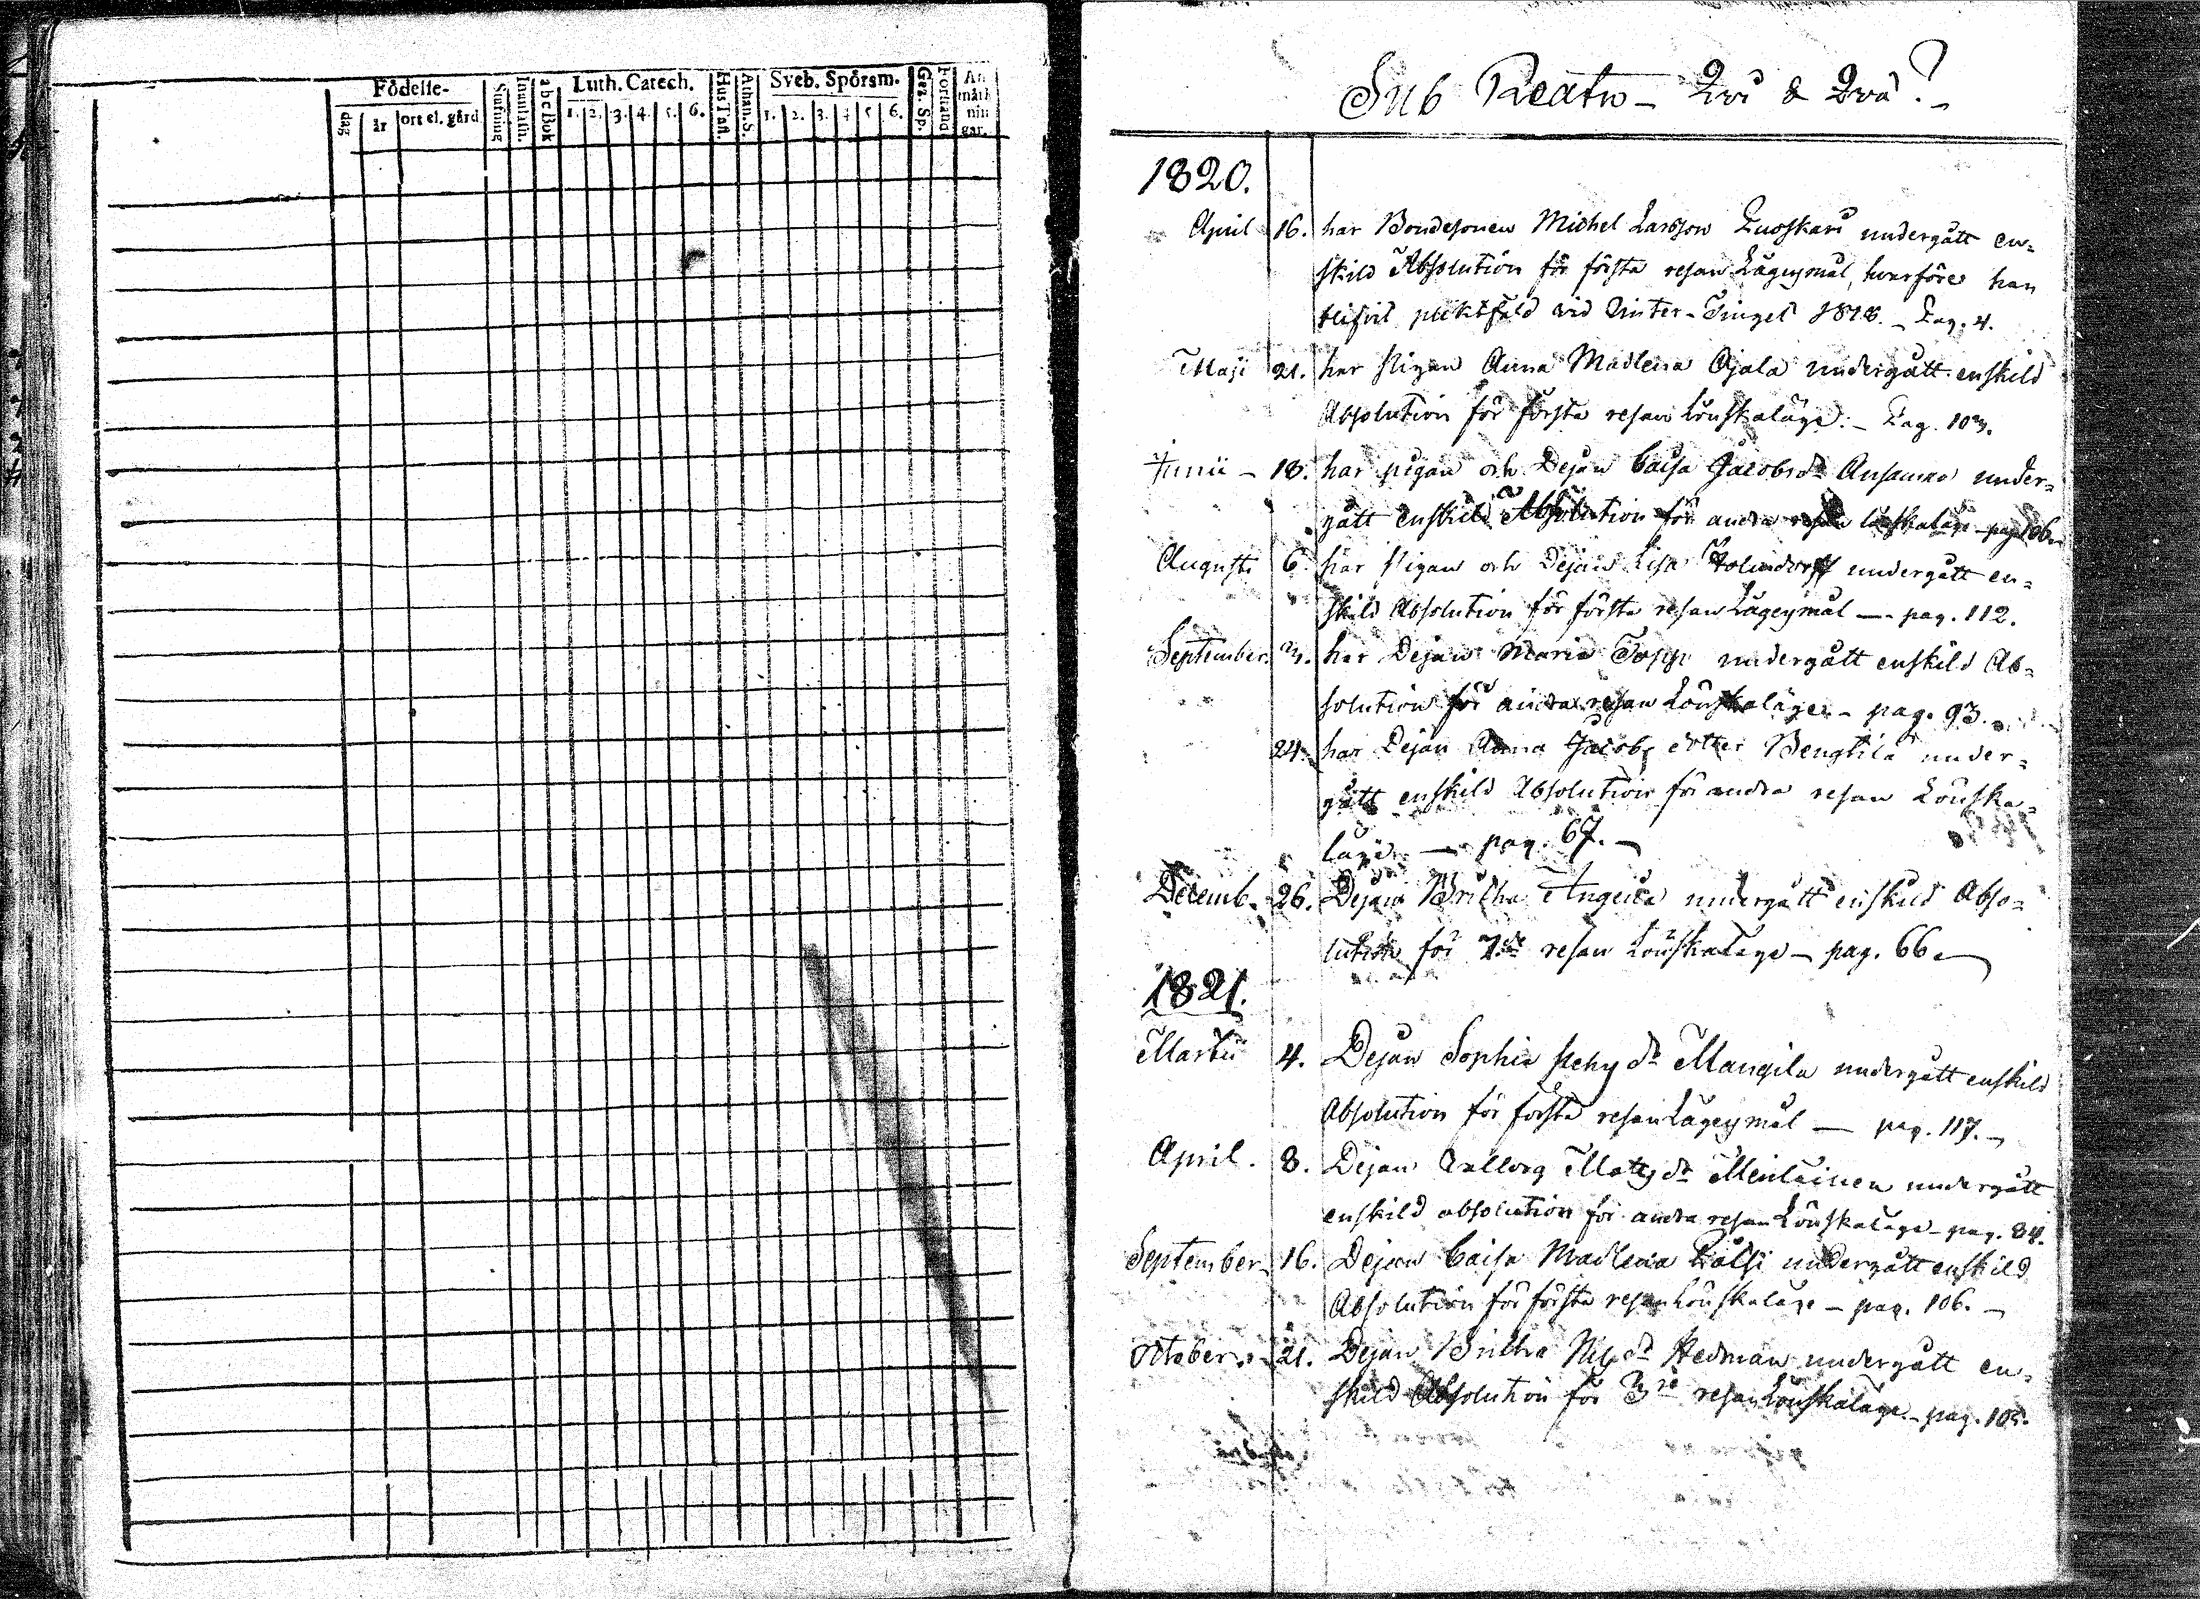 Födelse-
dag
år
ort el. gård
Stafning
Innanläsn.
abcBok
Luth. Catech.
1. 2. 3. 4. 5. 6.
HusTafl.
Athan. S.
Sveb. Spörsm.
1. 2. 3. 4 5 6.
Gez. Sp.
Förstånd
An
märk
nin
gar.
Sub Reatu - Qvi & Qvä?
1820.
April 16. har Bondesonen Michel Larsson undergått en=
skild Absolution för första resan Lägersmål, hvarföre han
blifvit pliktfäld vid Vinter-Tinget 1818. - Pag. 4.
Maji 21. har Pigan Anna Madlena Ojala undergått enskild
Absolution för första resan Lönskaläge. - Pag. 103.
Junii - 18. har pigan och Dejan Caisa Jacobsdr Ansamaa under=
gått enskild Absolution för andra resan lönskaläge - pag 106.
Augusti 6. har Pigan och Dejan Lisa undergått en=
skild Absolution för första resan Lägersmål - pag. 112.
September. 3. har Dejan Maria Topp undergått enskild Ab=
solution för andra resan Lönskaläge - pag. 93.
24. har Dejan Anna Jacobsdotter Bengtilä under=
gått enskild Absolution för andra resan Lönska=
läge - pag. 67. -
Decemb. 26. Dejan Britha Angeria undergått enskild Abso=
lution för resan Lönskaläge - pag. 66.
1821.
Martii 4. Dejan Sophia Pehrsdr Mangila undergått enskild
Absolution för första resan Lägersmål - pag. 117. -
April. 8. Dejan Valborg Matsdr undergått
enskild absolution för andra resan Lönskaläge - pag. 84.
September 16. Dejan Caisa Madlena undergått enskild
Absolution för första resan Lönskaläge - pag. 106. -
October. 21. Dejan Britha Nilsdr Hedman undergått en=
skild Absolution för 3je resan Lönskaläge - pag. 105.